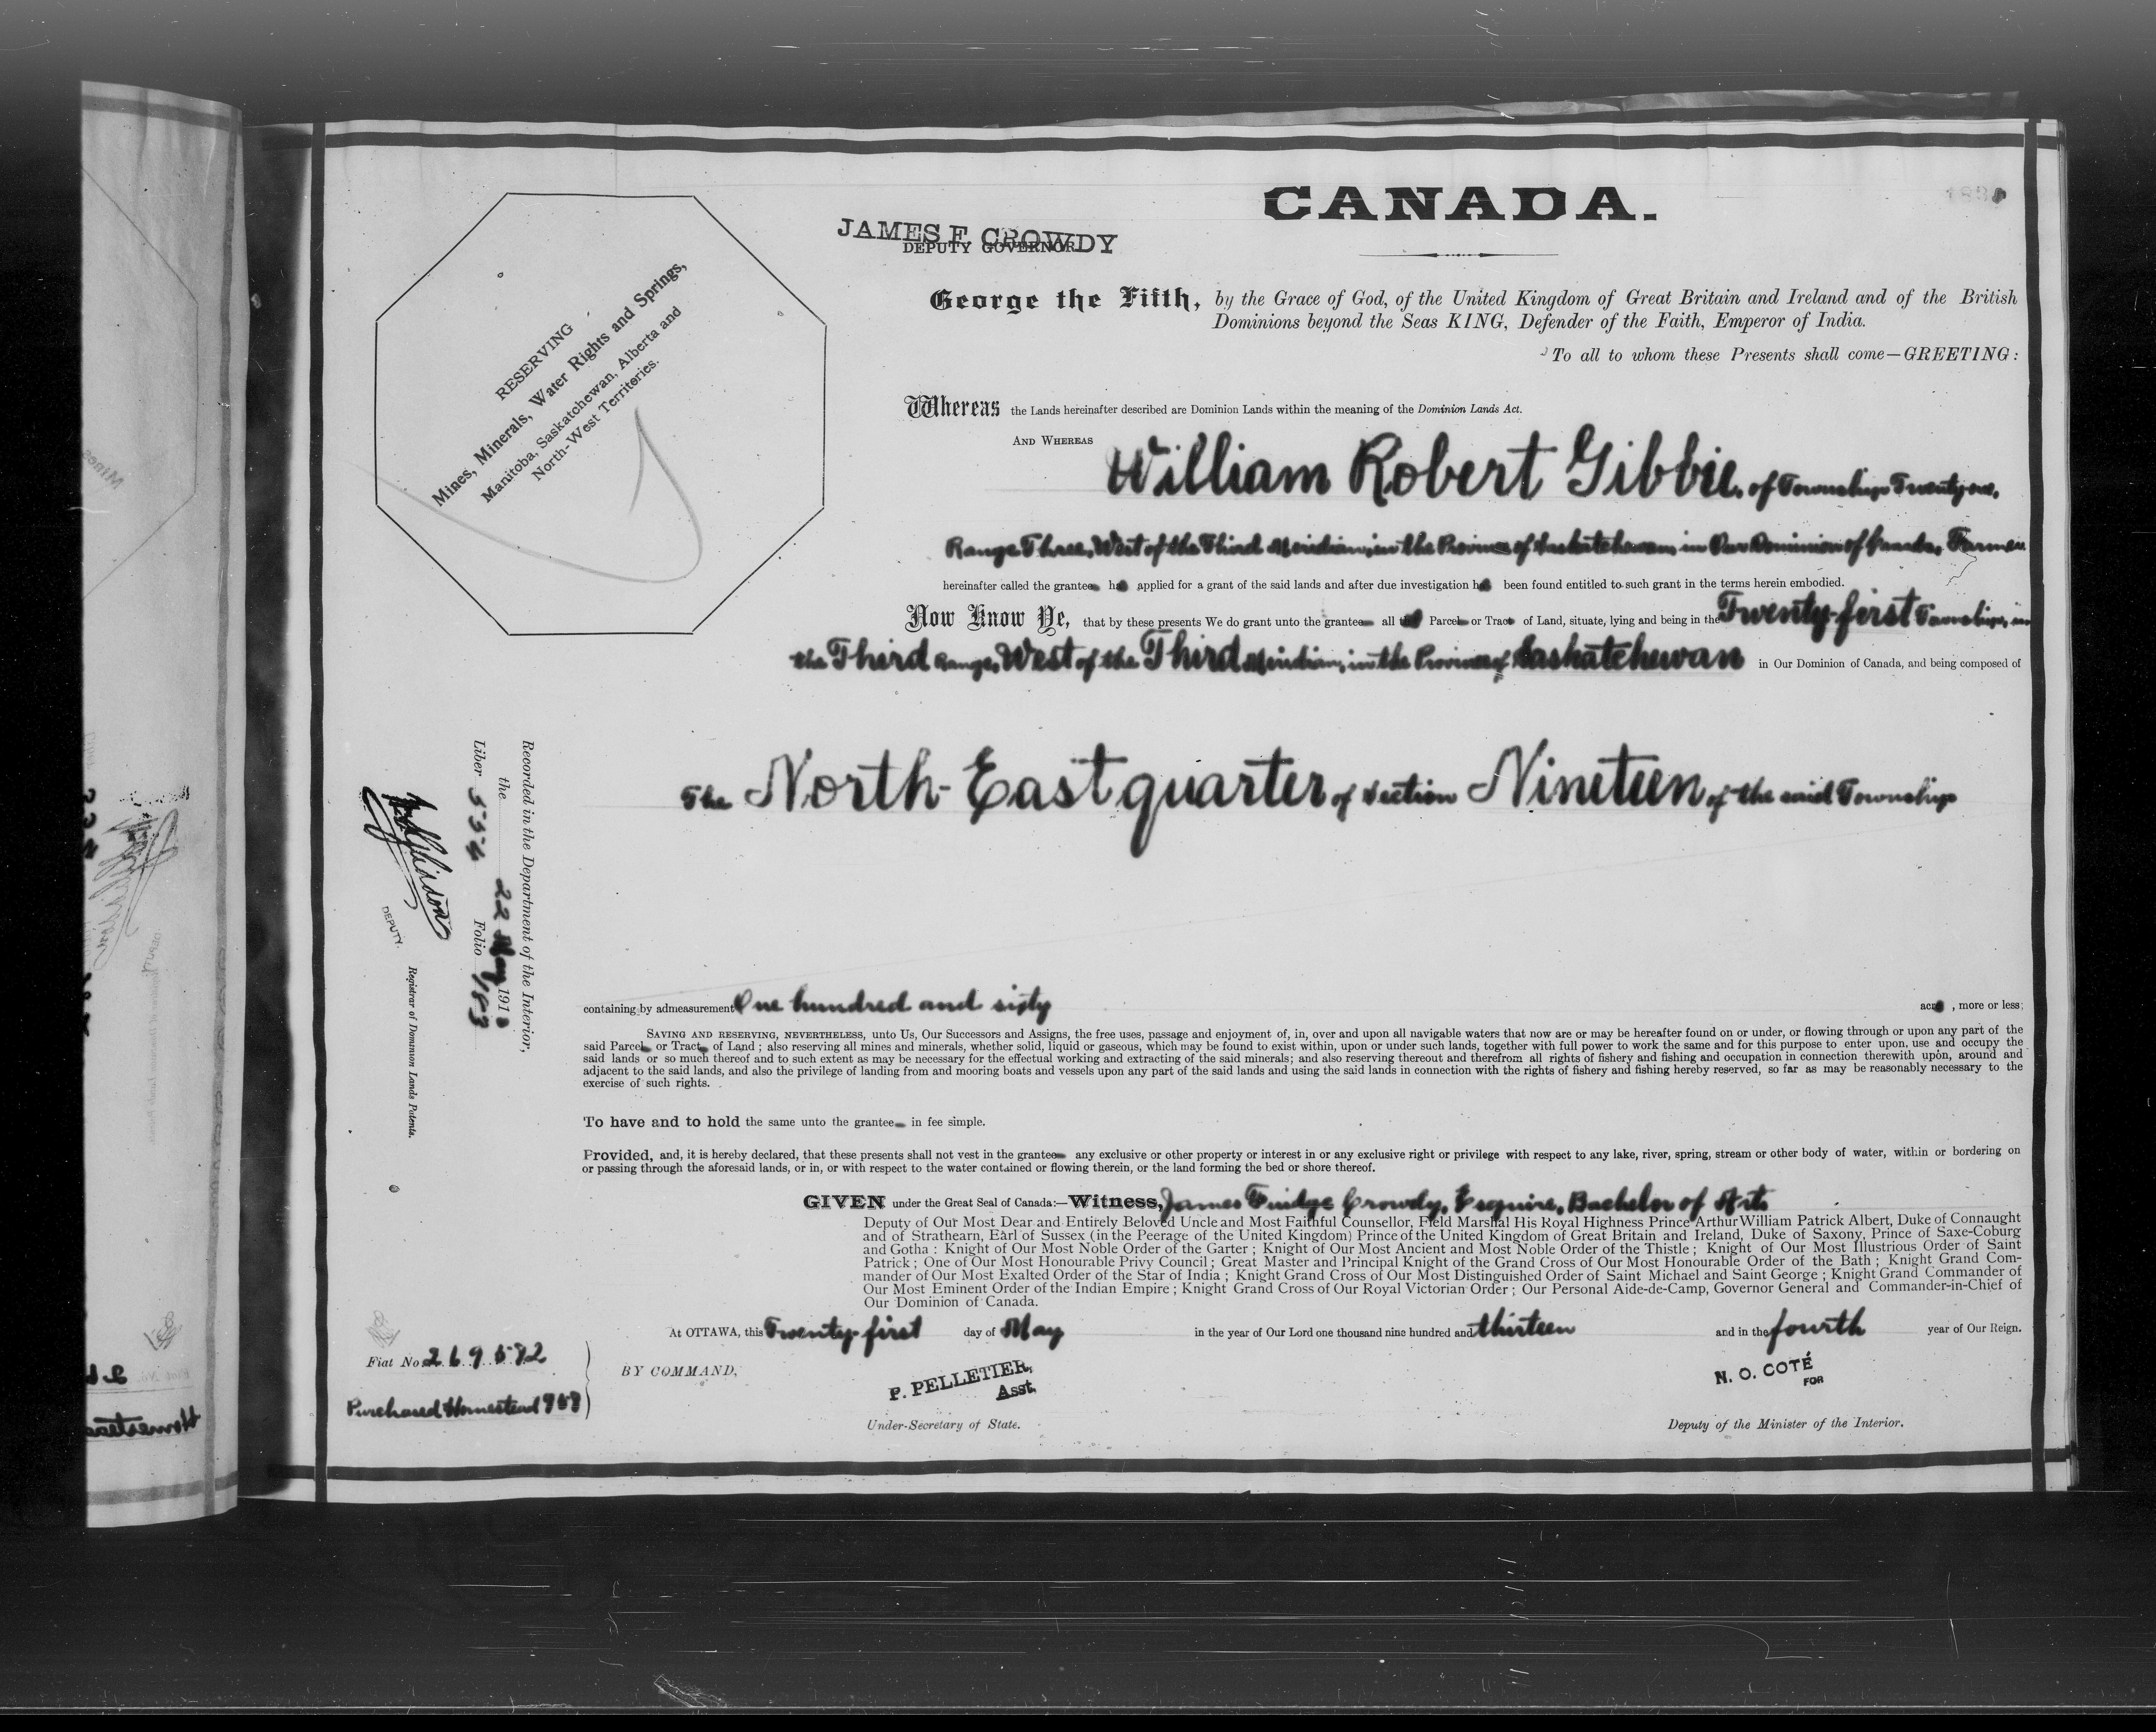 CANADA.
JAMES F. CROWDY
DEPUTY GOVERNOR
RESERVING
Mines, Minerals, Water Rights and Springs,
Manitoba, Saskatchewan, Alberta and
North-West Territories.
George the Fifth, by the Grace of God, of the United Kingdom of Great Britain and Ireland and of the British
Dominions beyond the Seas KING, Defender of the Faith, Emperor of India.
To all to whom these Presents shall come—GREETING:
Whereas the Lands hereinafter described are Dominion Lands within the meaning of the Dominion Lands Act.
AND WHEREAS William Robert Gibbie, of Township Twenty-one,
Range Three, West of the Third Meridian, in the Province of Saskatchewan, in Our Dominion of Canada, Farmer
hereinafter called the grantee applied for a grant of the said lands and after due investigation been found entitled to such grant in the terms herein embodied.
Now Know Ye, that by these presents We do grant unto the grantee all Parcel or Tract of Land, situate, lying and being in the Twenty-first Township, in
the Third Range, West of the Third Meridian, in the Province of Saskatchewan in Our Dominion of Canada, and being composed of
The North-East quarter of Section Nineteen of the said Township
containing by admeasurement One hundred and sixty acre , more or less;
SAVING AND RESERVING, NEVERTHELESS, unto Us, Our Successors and Assigns, the free uses, passage and enjoyment of, in, over and upon all navigable waters that now are or may be hereafter found on or under, or flowing through or upon any part of the
said Parcel or Tract of Land ; also reserving all mines and minerals, whether solid, liquid or gaseous, which may be found to exist within, upon or under such lands, together with full power to work the same and for this purpose to enter upon, use and occupy the
said lands or so much thereof and to such extent as may be necessary for the effectual working and extracting of the said minerals; and also reserving thereout and therefrom all rights of fishery and fishing and occupation in connection therewith upon, around and
adjacent to the said lands, and also the privilege of landing from and mooring boats and vessels upon any part of the said lands and using the said lands in connection with the rights of fishery and fishing hereby reserved, so far as may be reasonably necessary to the
exercise of such rights.
To have and to hold the same unto the grantee in fee simple.
Provided, and, it is hereby declared, that these presents shall not vest in the grantee any exclusive or other property or interest in or any exclusive right or privilege with respect to any lake, river, spring, stream or other body of water, within or bordering on
or passing through the aforesaid lands, or in, or with respect to the water contained or flowing therein, or the land forming the bed or shore thereof.
GIVEN under the Great Seal of Canada:—Witness, James Fridge Crowdy, Esquire, Bachelor of Arts
Deputy of Our Most Dear and Entirely Beloved Uncle and Most Faithful Counsellor, Field Marshal His Royal Highness Prince Arthur William Patrick Albert, Duke of Connaught
and of Strathearn, Earl of Sussex (in the Peerage of the United Kingdom) Prince of the United Kingdom of Great Britain and Ireland, Duke of Saxony, Prince of Saxe-Coburg
and Gotha : Knight of Our Most Noble Order of the Garter ; Knight of Our Most Ancient and Most Noble Order of the Thistle ; Knight of Our Most Illustrious Order of Saint
Patrick ; One of Our Most Honourable Privy Council ; Great Master and Principal Knight of the Grand Cross of Our Most Honourable Order of the Bath ; Knight Grand Com-
mander of Our Most Exalted Order of the Star of India ; Knight Grand Cross of Our Most Distinguished Order of Saint Michael and Saint George ; Knight Grand Commander of
Our Most Eminent Order of the Indian Empire ; Knight Grand Cross of Our Royal Victorian Order ; Our Personal Aide-de-Camp, Governor General and Commander-in-Chief of
Our Dominion of Canada.
At OTTAWA, this Twenty-first day of May in the year of Our Lord one thousand nine hundred and thirteen and in the fourth year of Our Reign.
BY COMMAND,
P. PELLETIER,
Asst.
Under-Secretary of State.
N. O. COTÉ
FOR
Deputy of the Minister of the Interior.
Recorded in the Department of the Interior,
the 22 May 191
Liber Folio 183
DEPUTY.
Registrar of Dominion Lands Patents.
Fiat No. 269582
Purchased Homestead